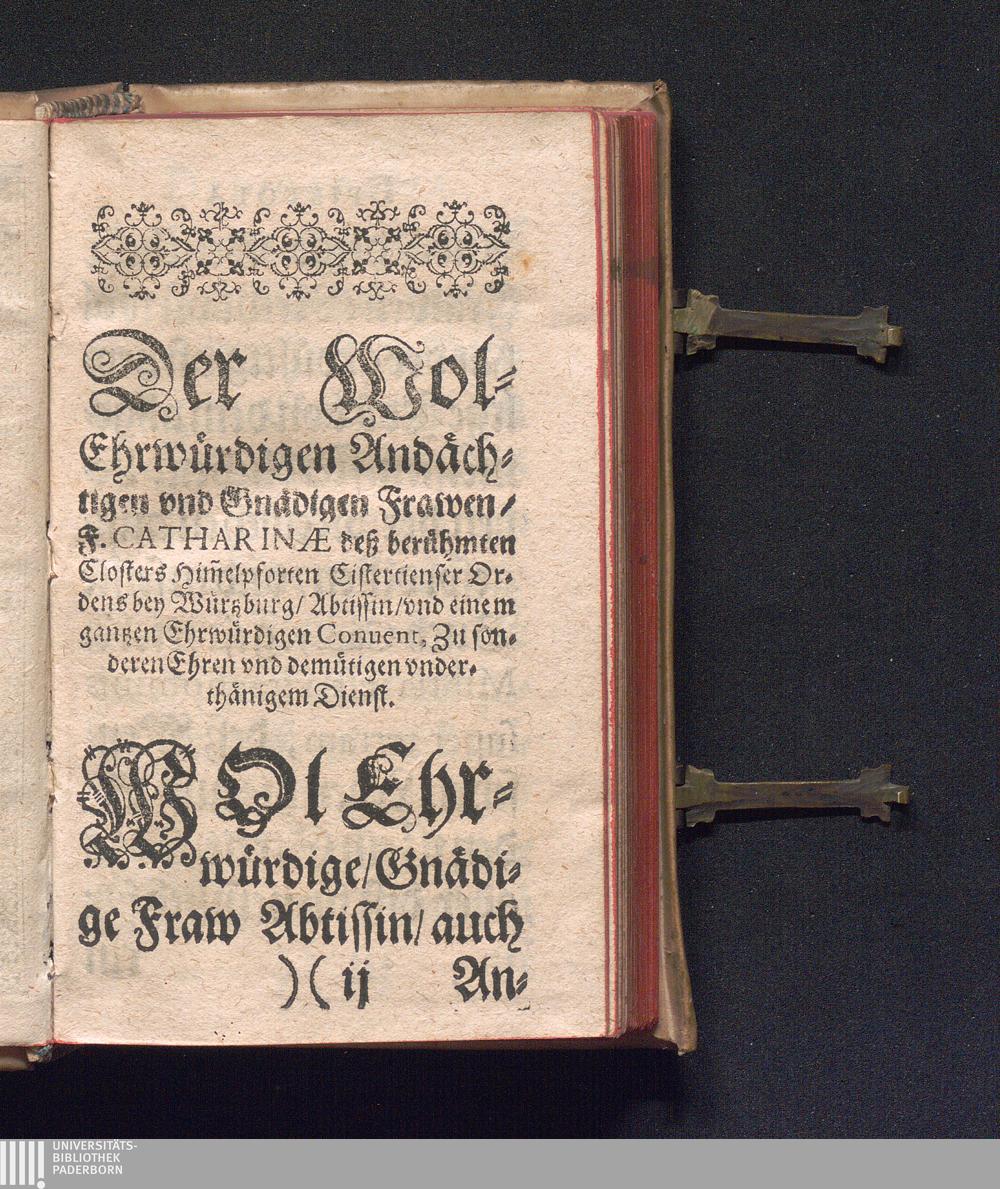 Der Wol-
Ehrwůrdigen Andåch-
tigen vnd Gnådigen Frawen/
F. CATHARINÆ deß berůhmten
Closters Him̃elpforten Cistertienser Or-
dens bey Wůrtzburg/ Abtissin/vnd einem
gantzen Ehrwůrdigen Conuent, Zu son-
deren Ehren vnd demůtigen vnder-
thånigem Dienst.
WOl Ehr-
wůrdige/Gnådi-
ge Fraw Abtissin/ auch
)( ij An-
UNIVERSITÄTS-
BIBLIOTHEK
PADERBORN